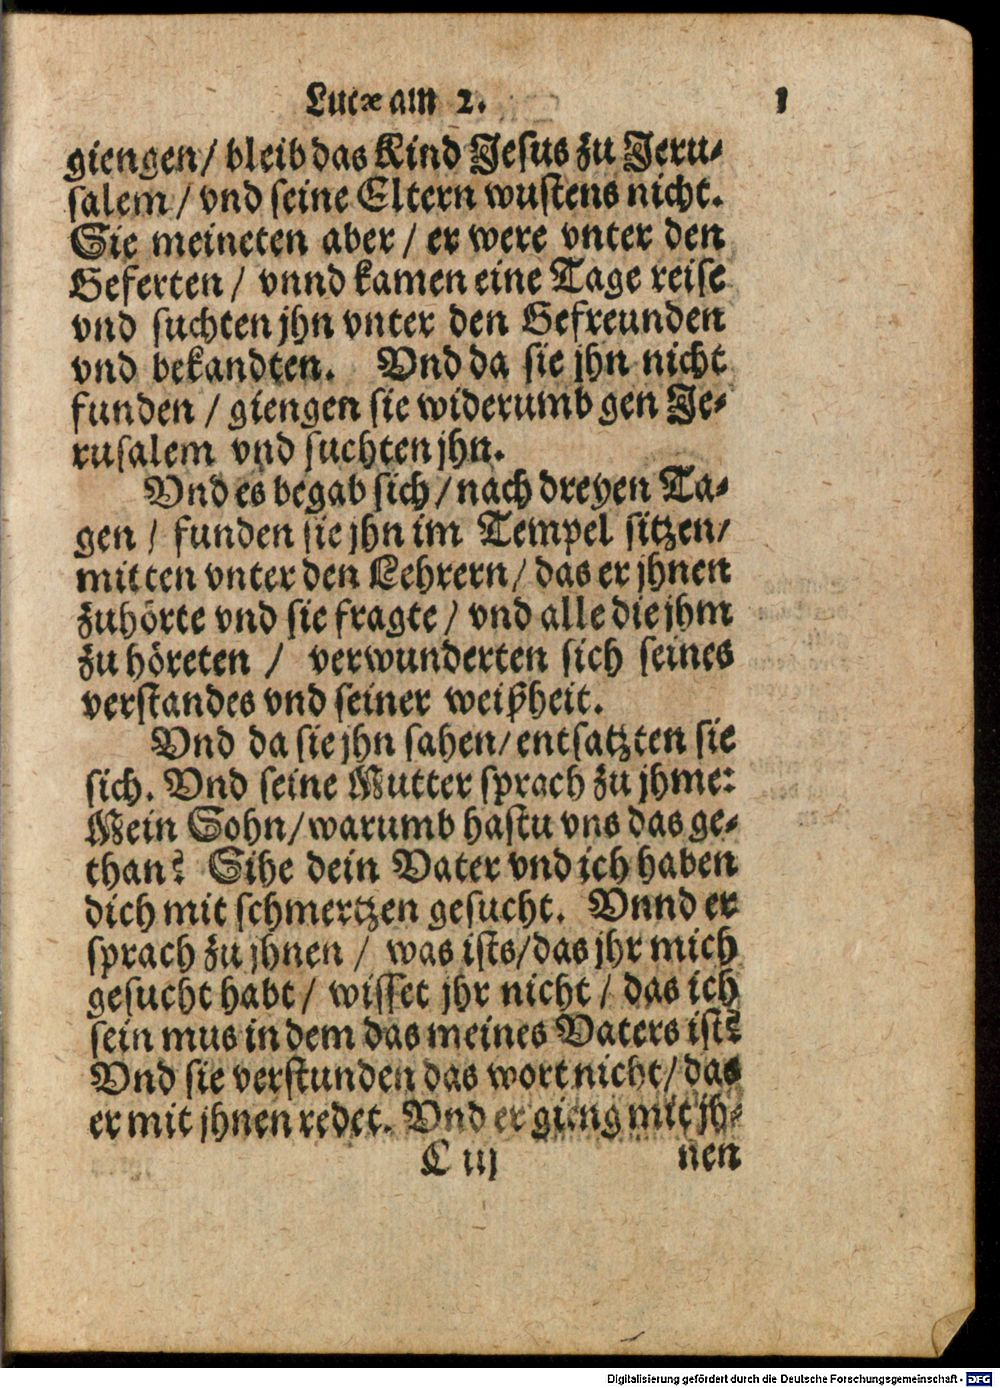 Lucæ am 2. 1
giengen/ bleib das Kind Jesus zu Jeru-
salem/ vnd seine Eltern wustens nicht.
Sie meineten aber/ er were vnter den
Geferten/ vnnd kamen eine Tage reise
vnd suchten jhn vnter den Gefreunden
vnd bekandten. Vnd da sie jhn nicht
funden/ giengen sie widerumb gen Je-
rusalem vnd suchten jhn.
Vnd es begab sich/ nach dreyen Ta-
gen/ funden sie jhn im Tempel sitzen/
mitten vnter den Lehrern/ das er jhnen
zuhörte vnd sie fragte/ vnd alle die jhm
zu höreten/ verwunderten sich seines
verstandes vnd seiner weißheit.
Vnd da sie jhn sahen/ entsatzten sie
sich. Vnd seine Mutter sprach zu jhme:
Mein Sohn/ warumb hastu vns das ge-
than? Sihe dein Vater vnd ich haben
dich mit schmertzen gesucht. Vnnd er
sprach zu jhnen/ was ists/ das jhr mich
gesucht habt/ wisset jhr nicht/ das ich
sein mus in dem das meines Vaters ist?
Vnd sie verstunden das wort nicht/ das
er mit jhnen redet. Vnd er gieng mit jh-
C iij nen
Digitalisierung gefördert durch die Deutsche Forschungsgemeinschaft - DFG